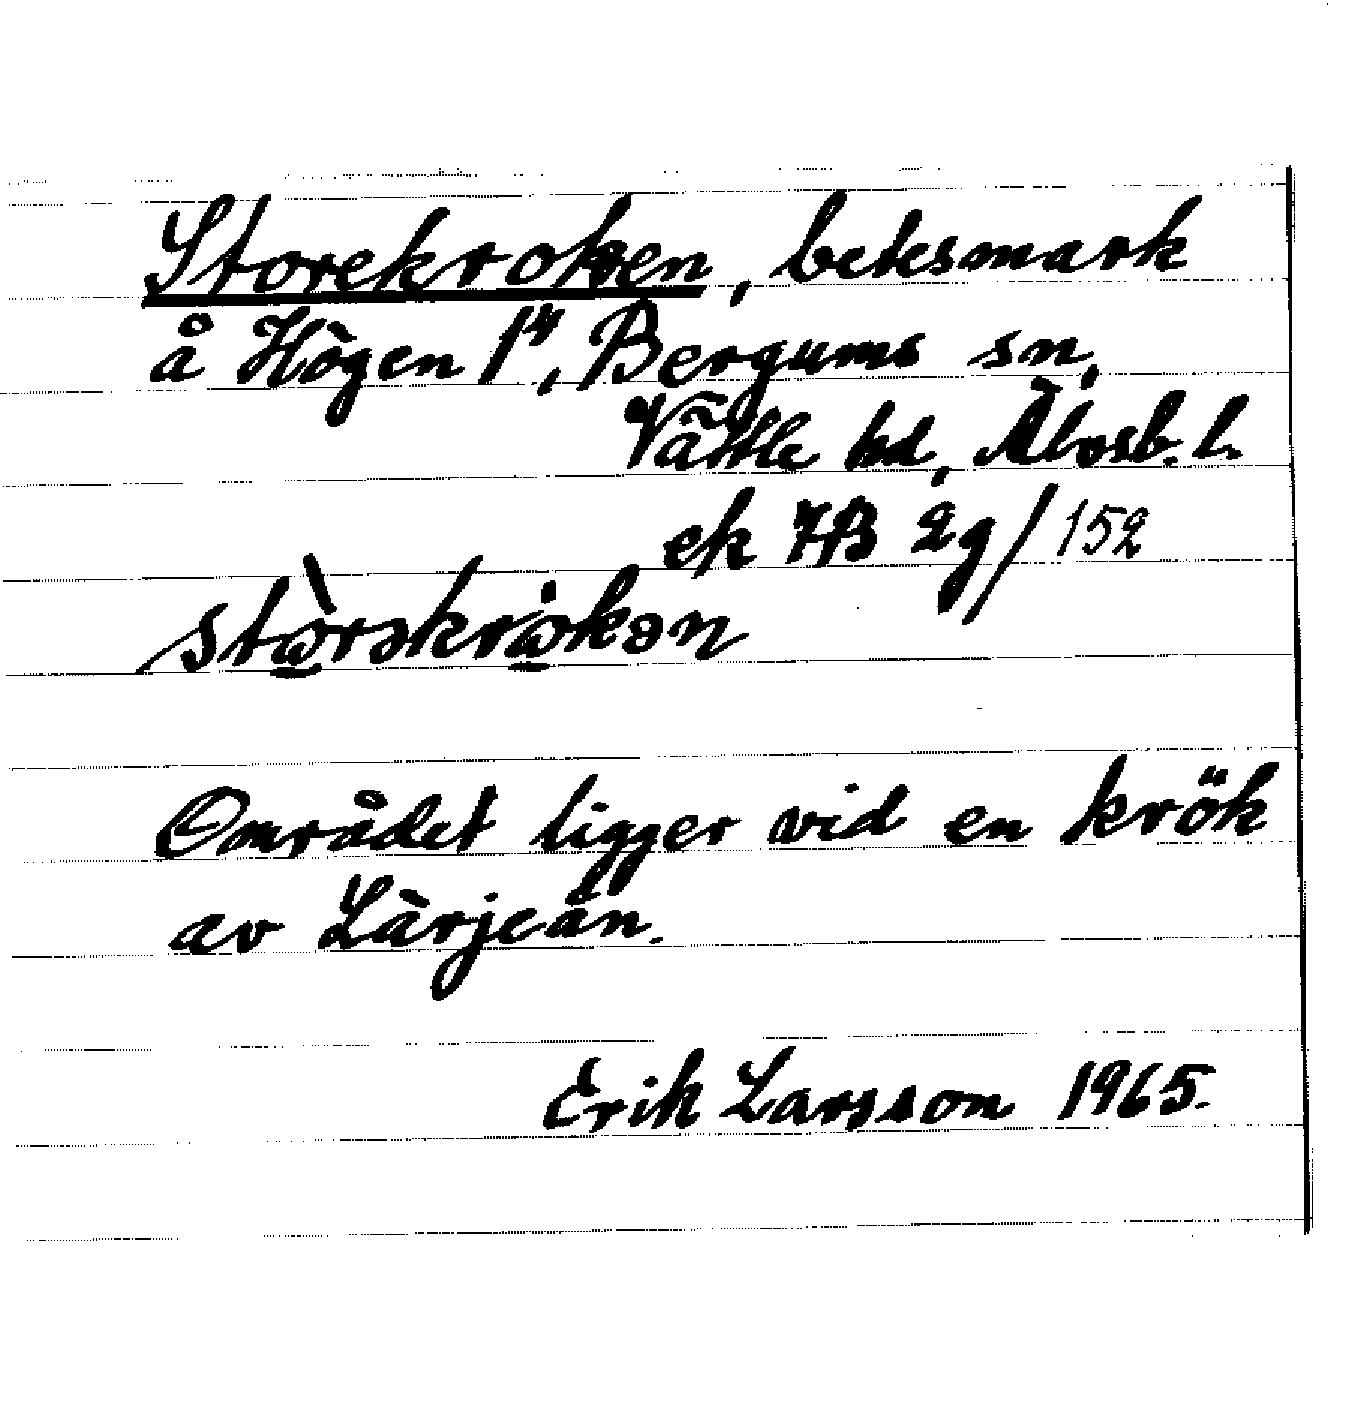 Storekroken, betesmark
å Högen 1⁴, Bergums sn,
Vättle hd, Älvsb. l.
ek 7B 2g/152
stὼrəkrω̇kən
Området ligger vid en krök
av Lärjeån.
Erik Larsson 1965.